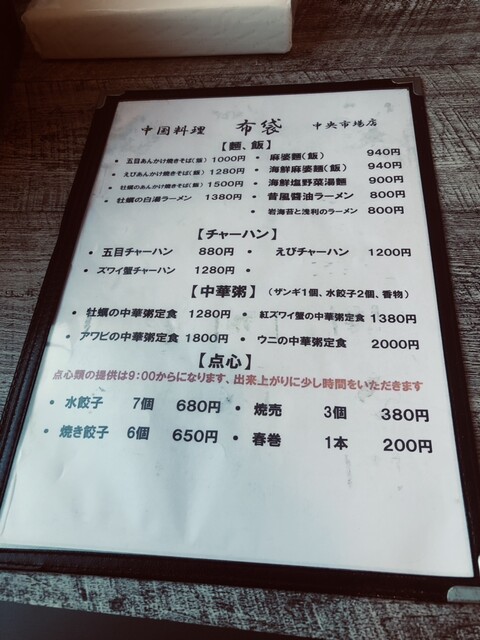 中国料理 布袋 中央市場店
【麺、飯】
• 五目あんかけ焼きそば(飯) 1000円 • 麻婆麺(飯) 940円
• えびあんかけ焼きそば(飯) 1280円 • 海鮮麻婆麺(飯) 940円
• 牡蠣のあんかけ焼きそば(飯) 1500円 • 海鮮塩野菜湯麺 900円
• 牡蠣の白湯ラーメン 1380円 • 昔風醤油ラーメン 800円
• 岩海苔と浅利のラーメン 800円
【チャーハン】
• 五目チャーハン 880円 • えびチャーハン 1200円
• ズワイ蟹チャーハン 1280円 •
【中華粥】 (ザンギ1個、水餃子2個、香物)
• 牡蠣の中華粥定食 1280円 • 紅ズワイ蟹の中華粥定食 1380円
• アワビの中華粥定食 1800円 • ウニの中華粥定食 2000円
【点心】
点心類の提供は9:00からになります、出来上がりに少し時間をいただきます
• 水餃子 7個 680円 • 焼売 3個 380円
• 焼き餃子 6個 650円 • 春巻 1本 200円